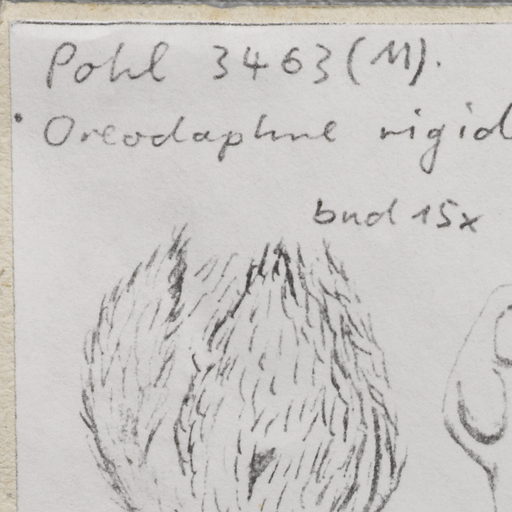 Pohl 3463 (M).
Oreodaphne rigid
bud 15x